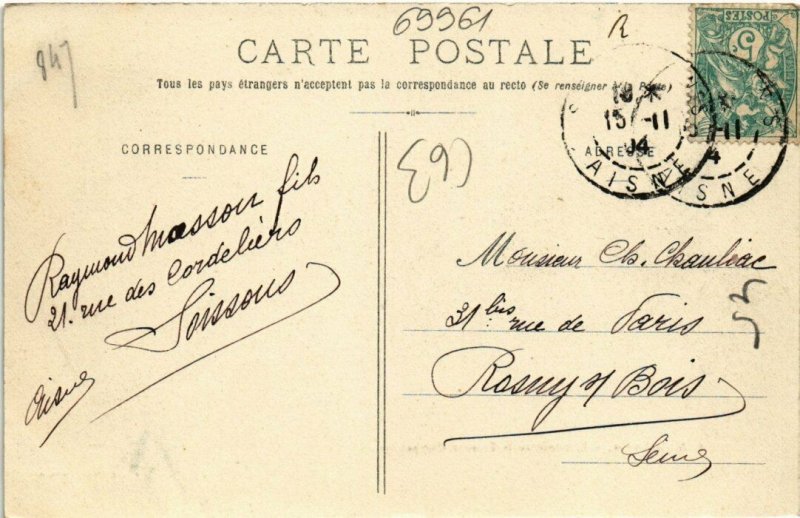 69961
R
847
CARTE POSTALE
Tous les pays étrangers n'acceptent pas la correspondance au recto (Se renseigner à la Poste)
POSTES
5
18
15 -11
04
AISNE
-11
4
AISNE
CORRESPONDANCE
ADRESSE
Raymond Masson fils
21. rue des Cordeliers
Soissons
Aisne
Monsieur Ch. Chauliac
31 bis rue de Paris
Rosny s/ Bois
Seine